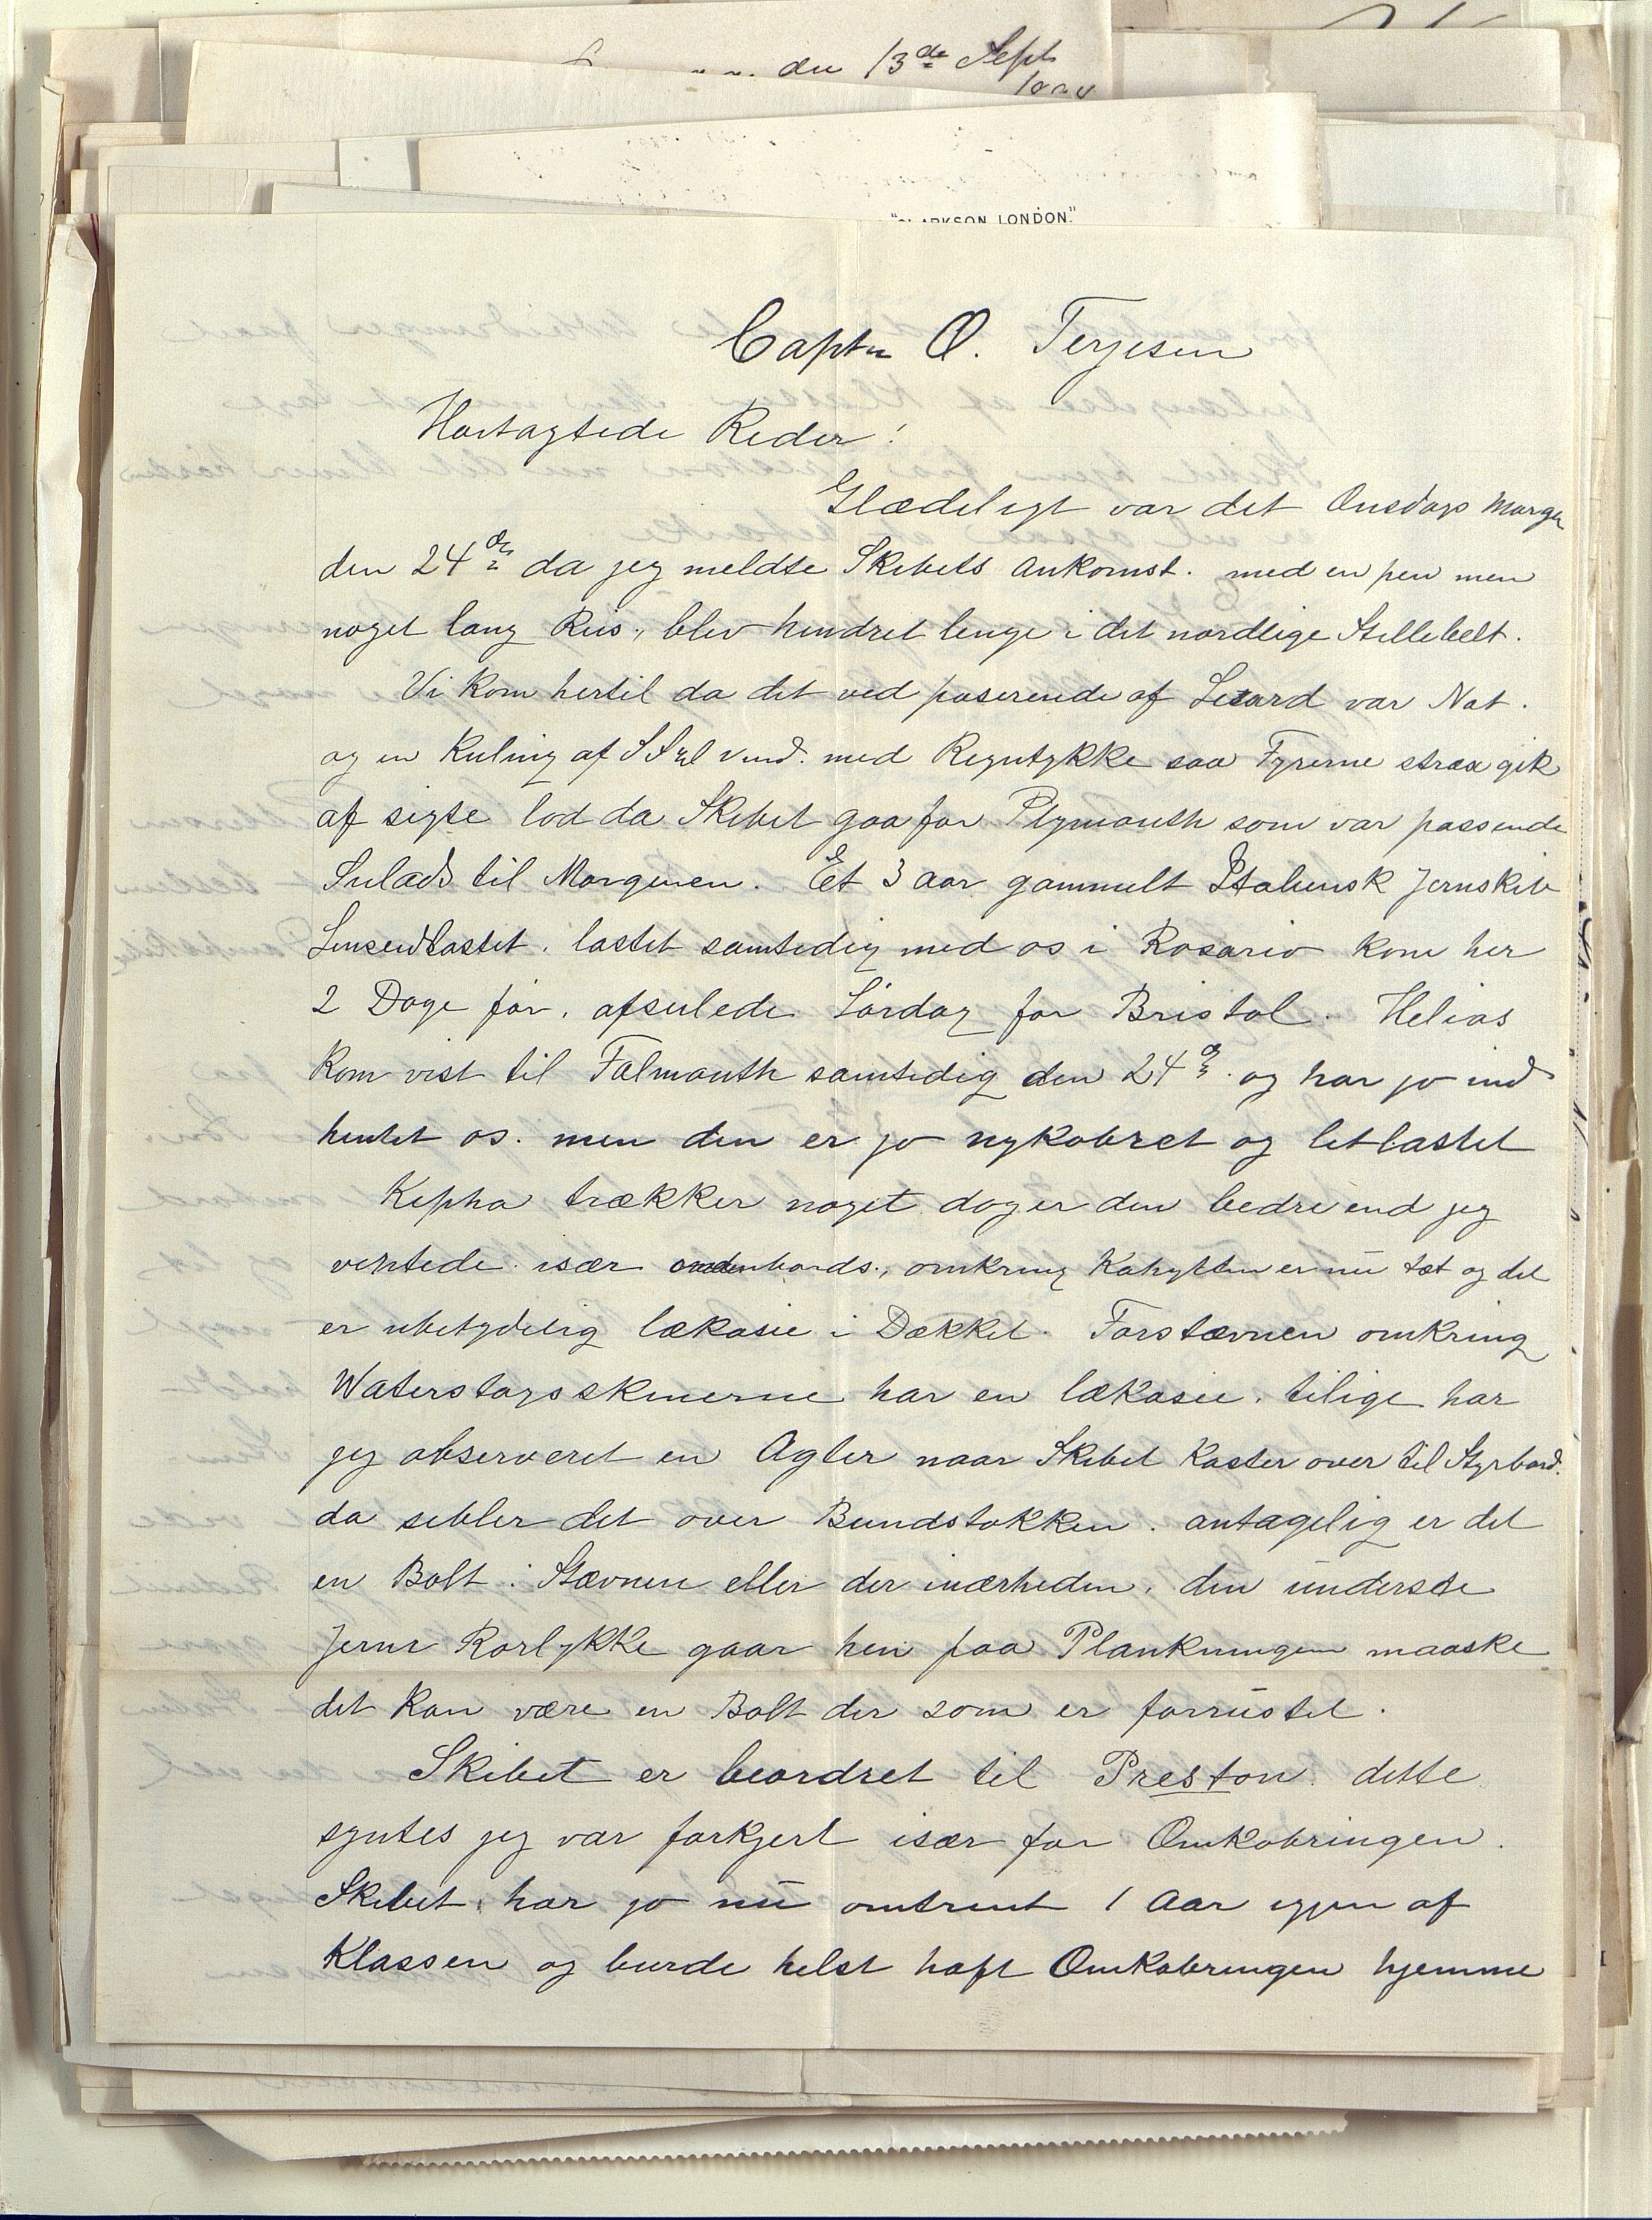 den 13de Sept
"CLARKSON LONDON."
Captn O. Terjesen
Høitagtede Reder!
Glædeligt var det Onsdags Morgen
den 24de da jeg meldte Skibets Ankomst. med en pen men
noget lang Reis., blev hindret lenge i det nordlige Stillebelt.
Vi kom hertil da det ved paserende af Lezard var Nat.
og en Kuling af SSW vind. med Regntykke saa Fyrerne strax gik
af sigte lod da Skibet gaa for Plymouth som var passende
Seilads til Morgenen. Et 3 aar gammelt Italiensk Jernskib
Linseedlastet. lastet samtidig med os i Rosario kom her
2 Dage før. afseilede Lørdag for Bristol. Helios
kom vist til Falmouth samtidig den 24de. og har jo ind
hentet os. men den er jo nykobret og letlastet
Kepha trækker noget dog er den bedre end jeg
ventede. især ombords., omkring Kahytten er nu tæt og det
er ubetydelig lækasie i Dækket. Forstævnen omkring
Waterstagsskinerne har en lækasie. tilige har
jeg observeret en Agter naar Skibet kaster over til Styrbord.
da sibler det over Bundstokken. antagelig er det
en Bolt i Stævnen eller der inærheden. den underste
Jerne Rorlykke gaar hen paa Plankningen maaske
det kan være en Bolt der som er forrustet.
Skibet er beordret til Preston. dette
syntes jeg var forkjert især for Omkobringen.
Skibet. har jo nu omtrent 1 Aar igjen af
Klassen og burde helst haft Omkobringen hjemme